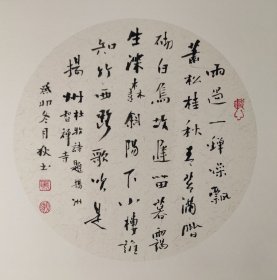 雨過一蟬噪飄
蕭松桂秋青苔滿階
砌白鳥故遲留暮靄
生深森斜陽下小樓誰
知竹西路歌吹是
揚州
杜牧詩題揚州
智禪寺
癸卯冬月